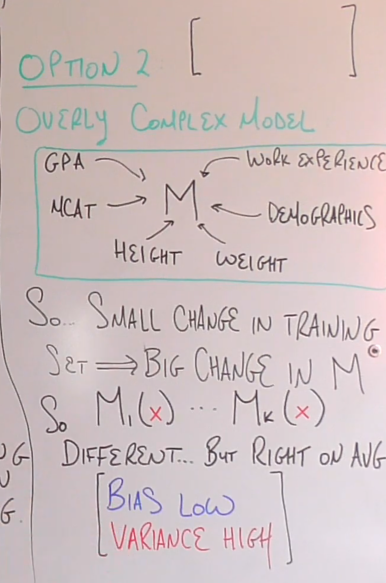 OPTION 2 [ ]
OVERLY COMPLEX MODEL
GPA
WORK EXPERIENCE
MCAT
M
DEMOGRAPHICS
HEIGHT
WEIGHT
SO... SMALL CHANGE IN TRAINING
SET ⇒ BIG CHANGE IN M
SO M₁(x) ... Mₖ(x)
DIFFERENT... BUT RIGHT ON AVG
[BIAS LOW
VARIANCE HIGH]